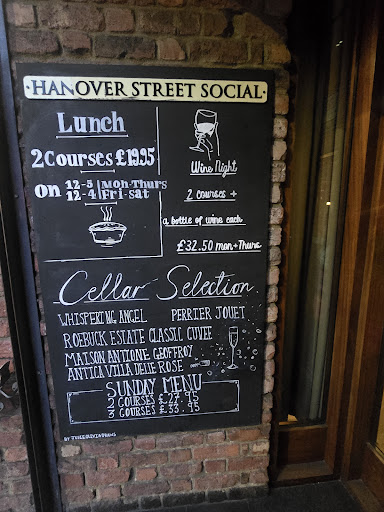 ·HANOVER STREET SOCIAL·
Lunch
2 Courses £19.95
on 12-5 Mon-Thurs
12-4 Fri-Sat
Wine Night
2 courses +
a bottle of wine each
£32.50 mon-Thurs
Cellar Selection
WHISPERING ANGEL PERRIER JOUET
ROEBUCK ESTATE CLASSIC CUVEE
MAISON ANTIONE GEOFFROY
ANTICA VILLA DELLE ROSE
SUNDAY MENU
2 COURSES £27.95
3 COURSES £33.95
BY